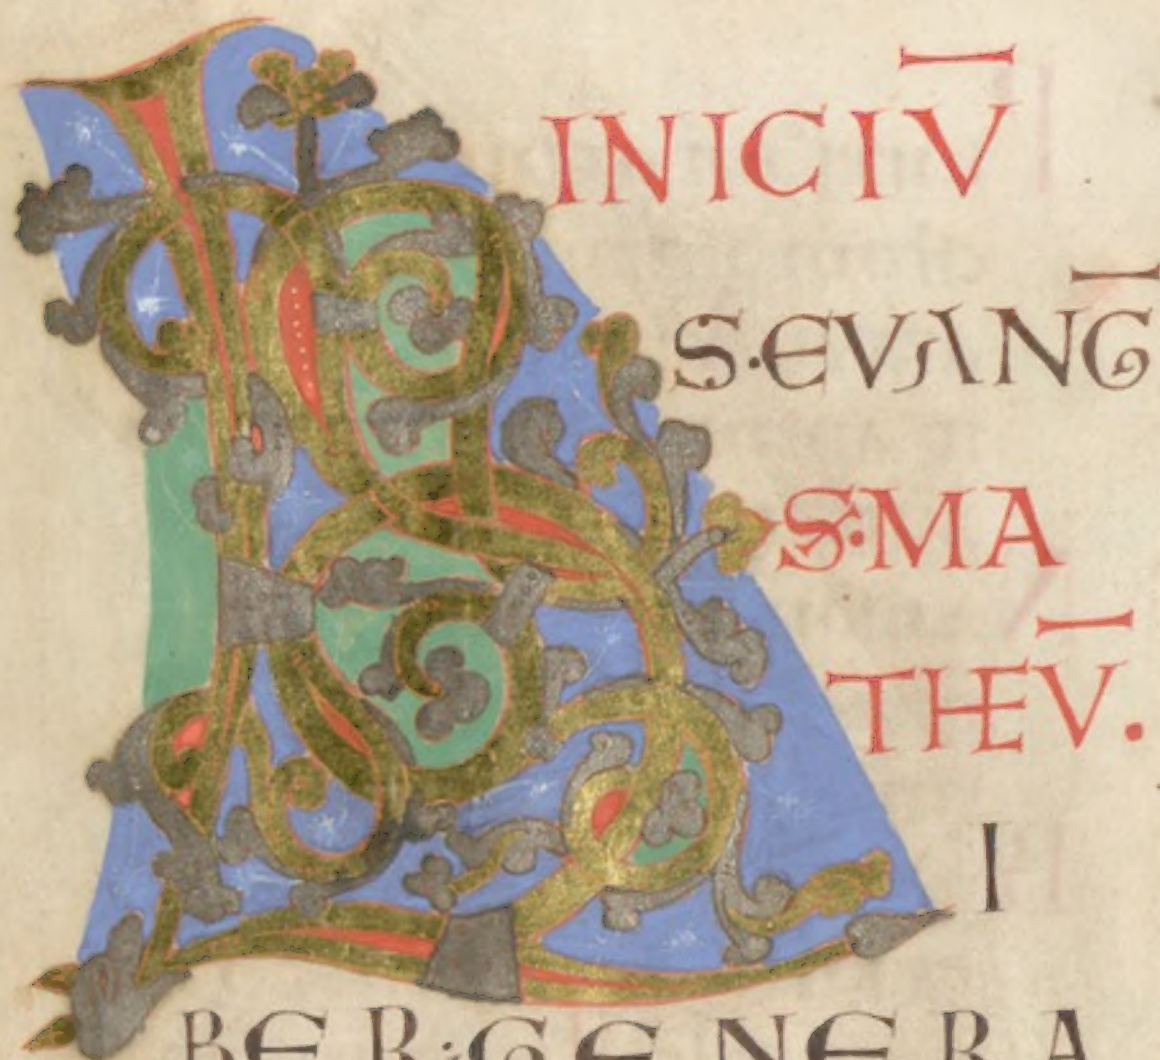 INICIV̄
S·EVANḠ
S·MA
THEV̄.
LI
BER:GENERA